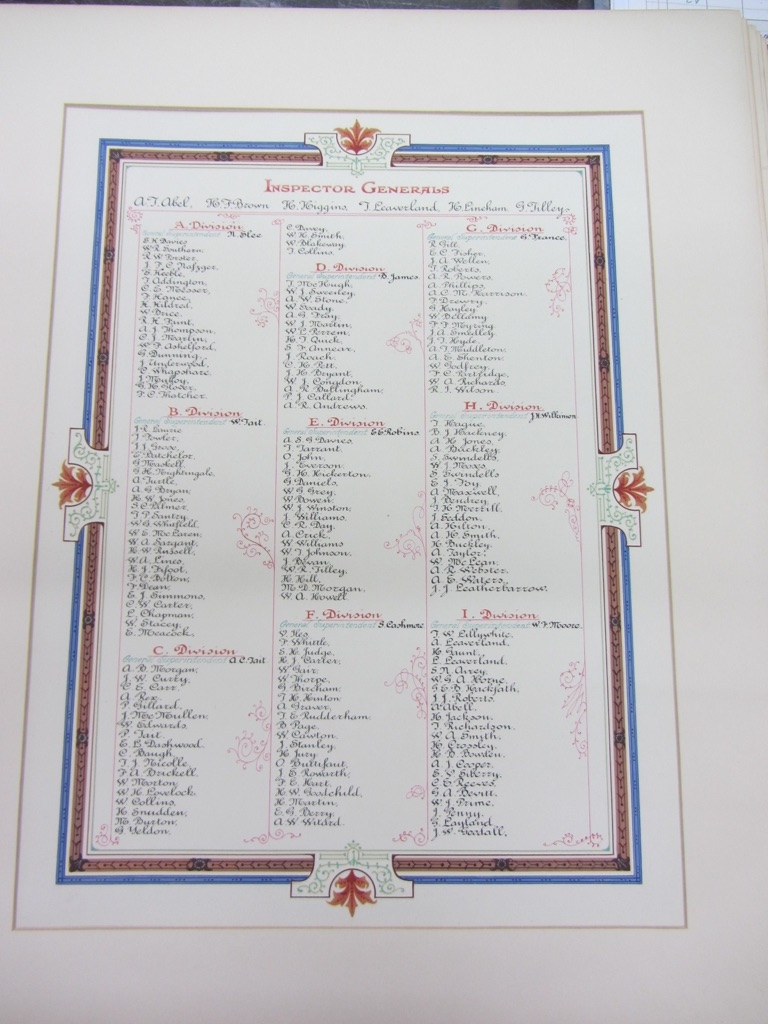 INSPECTOR GENERALS
A.T. Abel, H.F. Brown H. Higgins, T Leaverland, H. Lincham G. Tilley,
A. Division
General Superintendent H. Slee
E.H. Davies
W.R. Southern,
R.W. Forster,
J.F.C. Nafzger,
E. Keeble,
T. Addington,
C.E. Melsser,
F. Hance,
H. Hildred,
W. Brice,
R.H. Funt,
A.J. Thompson,
C.J. Martin,
W.F. Ashelford,
G. Dunning,
J. Underwood,
C. Whapshare,
J. Mulloy,
F.C. Thatcher,
B. Division
General Superintendent W. Tait
J.R. Laurie
T. Fowler,
J.J. Grose,
E. Batchelor,
G. Maskell,
G.H. Nightingale,
A. Turtle,
A.G. Bryan,
H.W. Jones,
S.C. Palmer,
T.P. Santry,
W.G. Whitfield,
W.E. McLaren,
W.A. Sargant,
H.W. Russell,
W.A. Lines,
H.J. Fifoot,
F.C. Bolton,
F. Dean,
E.J. Simmons,
C.W. Carter,
L. Chapman,
W. Stacey,
E. Meacock,
C. Division
General Superintendent A.C. Tait
A.B. Morgan,
J.W. Curry,
C.E. Carr,
A. Rex,
P. Gillard,
J. McMullen,
W. Edwards,
P. Tait,
E.L. Dashwood,
C. Baugh,
T.J. Nicolle,
F.A. Brickell,
W. Morton,
W.H. Lovelock,
W. Collins,
H. Snudden,
M. Burton,
G. Yeldon,
C. Davey,
W.H. Smith,
W. Blakeway,
T. Collins,
D. Division
General Superintendent B. James
T. McHugh,
W.J. Sweetley,
A.W. Stone,
W. Soady,
A.G. Fray,
W.J. Martin,
W.L. Perrem,
H.T. Quick,
S.F. Annear,
J. Roach,
C.H. Pitt,
J.H. Bryant,
W.J. Congdon,
A.R. Bullingham,
P.J. Callard,
A.R. Andrews.
E. Division
General Superintendent E.C. Robins
A.S.G. Davies,
T. Tarrant,
O. John,
J. Everson,
G.H. Huckerton,
G. Daniels,
W.G. Grey,
W. Bowen,
W.J. Winston,
J. Williams,
C.R. Day,
A. Crick,
W. Williams
W.T. Johnson,
J. Bevan,
W.R. Tilley,
H. Hill,
M.D. Morgan,
W.A. Howell
F. Division
General Superintendent S. Cashmore
V. Iles,
F. Whittle,
E.H. Judge,
H.J. Carter,
W. Gair,
W. Thorpe,
G. Bircham,
T.H. Hinton
A. Graver,
T.E. Rudderham,
B. Page,
W. Cawton,
J. Stanley,
H. Jury,
O. Bultifent,
J.E. Rowarth,
F.E. Hart,
H.W. Goodchild,
H. Martin,
E.G. Berry,
A.W. Witard.
G. Division
General Superintendent G. France
R. Gill,
E.C. Fisher,
J.A. Wollen,
T. Roberts,
A.R. Powers,
A. Phillips,
A.C.M. Harrison,
F. Drewry,
G. Hayley,
W. Bellamy
F.F. Myring,
J.A. Smedley,
J.T. Hyde,
A.T. Middleton,
A.E. Shenton,
W. Godfrey,
F.C. Partridge,
W.A. Richards,
R.J. Wilson
H. Division
General Superintendent J.H. Wilkinson
T. Hague,
B.J. Hackney,
A.H. Jones,
A. Buckley,
S. Swindells,
W.J. Moses,
S. Swindells
E.J. Toy,
A. Maxwell,
J. Pendrey,
T.H. Merrill,
J. Seddon,
A. Hilton,
A.H. Smith,
H. Buckley,
A. Taylor,
W. McLean,
A.R. Webster,
A.E. Waters,
J.J. Leatherbarrow.
I. Division
General Superintendent W.F. Moore.
T.W. Lillywhite,
A. Leaverland,
H. Gaunt,
L. Leaverland,
S.N. Airey,
W.G.A. Horne,
G.E.B. Huckfath,
J.J. Roberts,
A. Abell,
H. Jackson,
T. Richardson,
W.A. Smyth,
H. Crossley,
H.B. Bowden,
A.J. Cooper,
E.V. Silberry,
C.E. Reeves,
G.A. Devitt,
W.J. Prime,
J. Penny,
G. Layland,
J.W. Goodall,